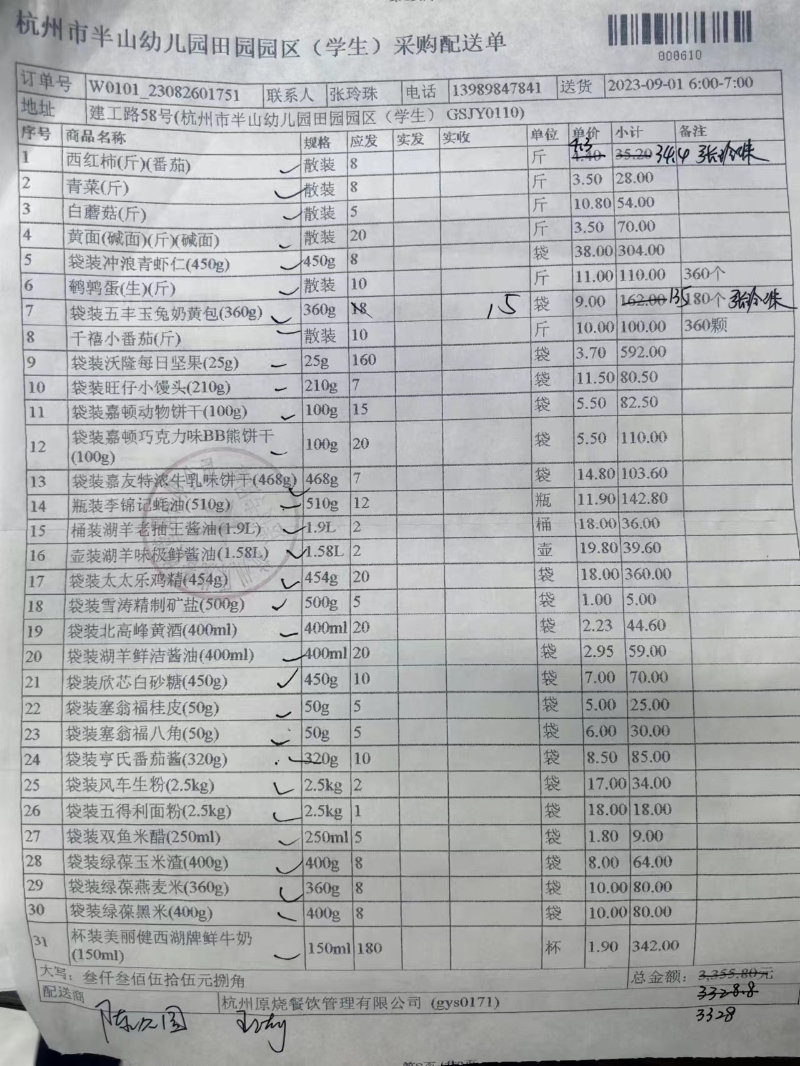 杭州市半山幼儿园田园园区（学生）采购配送单
000610
订单号 W0101_23082601751 联系人 张玲珠 电话 13989847841 送货 2023-09-01 6:00-7:00
地址 建工路58号(杭州市半山幼儿园田园园区（学生）GSJY0110)
序号 商品名称 规格 应发 实发 实收 单位 单价 小计 备注
1 西红柿(斤)(番茄) 散装 8 斤 4.40 4.3 35.20 34.4 张玲珠
2 青菜(斤) 散装 8 斤 3.50 28.00
3 白蘑菇(斤) 散装 5 斤 10.80 54.00
4 黄面(碱面)(斤)(碱面) 散装 20 斤 3.50 70.00
5 袋装冲浪青虾仁(450g) 450g 8 袋 38.00 304.00
6 鹌鹑蛋(生)(斤) 散装 10 斤 11.00 110.00 360个
7 袋装五丰玉兔奶黄包(360g) 360g 18 15 袋 9.00 162.00 135 180个 张玲珠
8 千禧小番茄(斤) 散装 10 斤 10.00 100.00 360颗
9 袋装沃隆每日坚果(25g) 25g 160 袋 3.70 592.00
10 袋装旺仔小馒头(210g) 210g 7 袋 11.50 80.50
11 袋装嘉顿动物饼干(100g) 100g 15 袋 5.50 82.50
12 袋装嘉顿巧克力味BB熊饼干
(100g) 100g 20 袋 5.50 110.00
13 袋装嘉友特浓牛乳味饼干(468g) 468g 7 袋 14.80 103.60
14 瓶装李锦记蚝油(510g) 510g 12 瓶 11.90 142.80
15 桶装湖羊老抽王酱油(1.9L) 1.9L 2 桶 18.00 36.00
16 壶装湖羊味极鲜酱油(1.58L) 1.58L 2 壶 19.80 39.60
17 袋装太太乐鸡精(454g) 454g 20 袋 18.00 360.00
18 袋装雪涛精制矿盐(500g) 500g 5 袋 1.00 5.00
19 袋装北高峰黄酒(400ml) 400ml 20 袋 2.23 44.60
20 袋装湖羊鲜洁酱油(400ml) 400ml 20 袋 2.95 59.00
21 袋装欣芯白砂糖(450g) 450g 10 袋 7.00 70.00
22 袋装塞翁福桂皮(50g) 50g 5 袋 5.00 25.00
23 袋装塞翁福八角(50g) 50g 5 袋 6.00 30.00
24 袋装亨氏番茄酱(320g) 320g 10 袋 8.50 85.00
25 袋装风车生粉(2.5kg) 2.5kg 2 袋 17.00 34.00
26 袋装五得利面粉(2.5kg) 2.5kg 1 袋 18.00 18.00
27 袋装双鱼米醋(250ml) 250ml 5 袋 1.80 9.00
28 袋装绿葆玉米渣(400g) 400g 8 袋 8.00 64.00
29 袋装绿葆燕麦米(360g) 360g 8 袋 10.00 80.00
30 袋装绿葆黑米(400g) 400g 8 袋 10.00 80.00
31 杯装美丽健西湖牌鲜牛奶
(150ml) 150ml 180 杯 1.90 342.00
大写: 叁仟叁佰伍拾伍元捌角 总金额: 3,355.80元
3328.8
3328
配送商 杭州原烧餐饮管理有限公司 (gys0171)